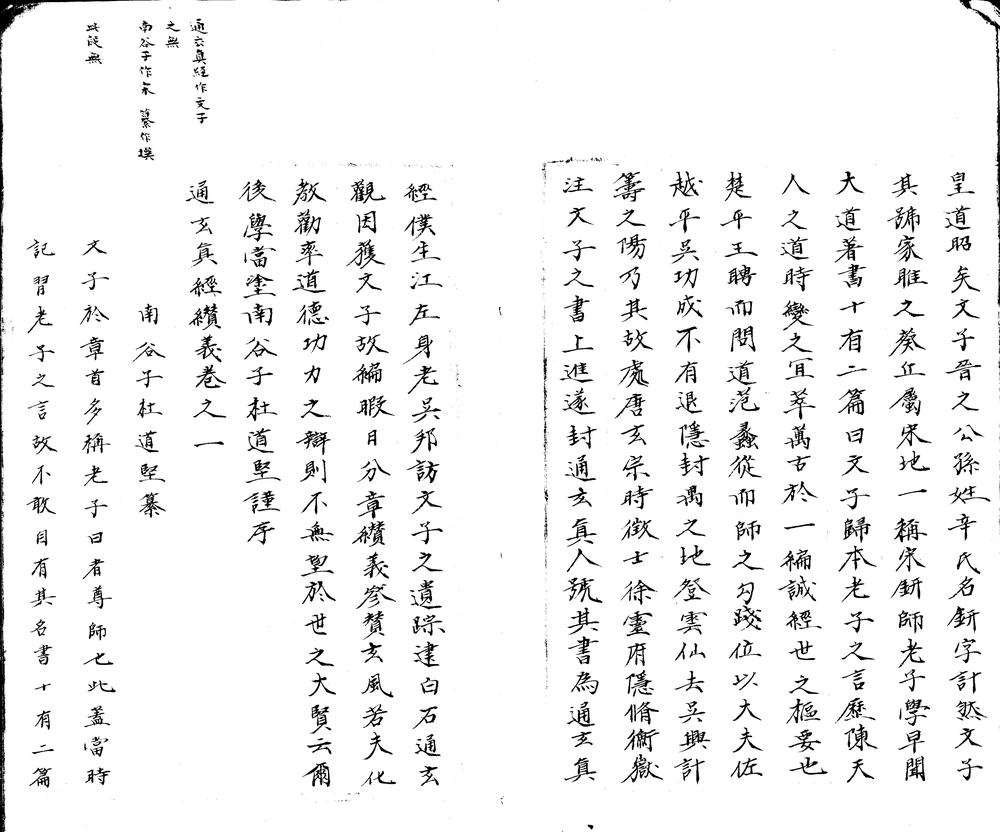 皇道昭矣文子晉之公孫姓辛氏名鈃字計然文子
其號家睢之葵丘屬宋地一稱宋鈃師老子學早聞
大道著書十有二篇曰文子歸本老子之言歷陳天
人之道時變之宜萃萬古於一編誠經世之樞要也
楚平王聘而問道范蠡從而師之勾踐位以大夫佐
越平吳功成不有退隱封禺之地登雲仙去吳興計
籌之陽乃其故處唐玄宗時徵士徐靈府隱脩衡嶽
注文子之書上進遂封通玄真人號其書為通玄真
經僕生江左身老吳邦訪文子之遺踪建白石通玄
觀因獲文子故編暇日分章纘義參贊玄風若夫化
教勸率道德功力之辯則不無望於世之大賢云爾
後學當塗南谷子杜道堅謹序
通玄真經纘義卷之一
南谷子杜道堅纂
文子於章首多稱老子曰者尊師也此蓋當時
記習老子之言故不敢自有其名書十有二篇
通玄真經作文子
之無
南谷子作宋 纂作撰
此段無